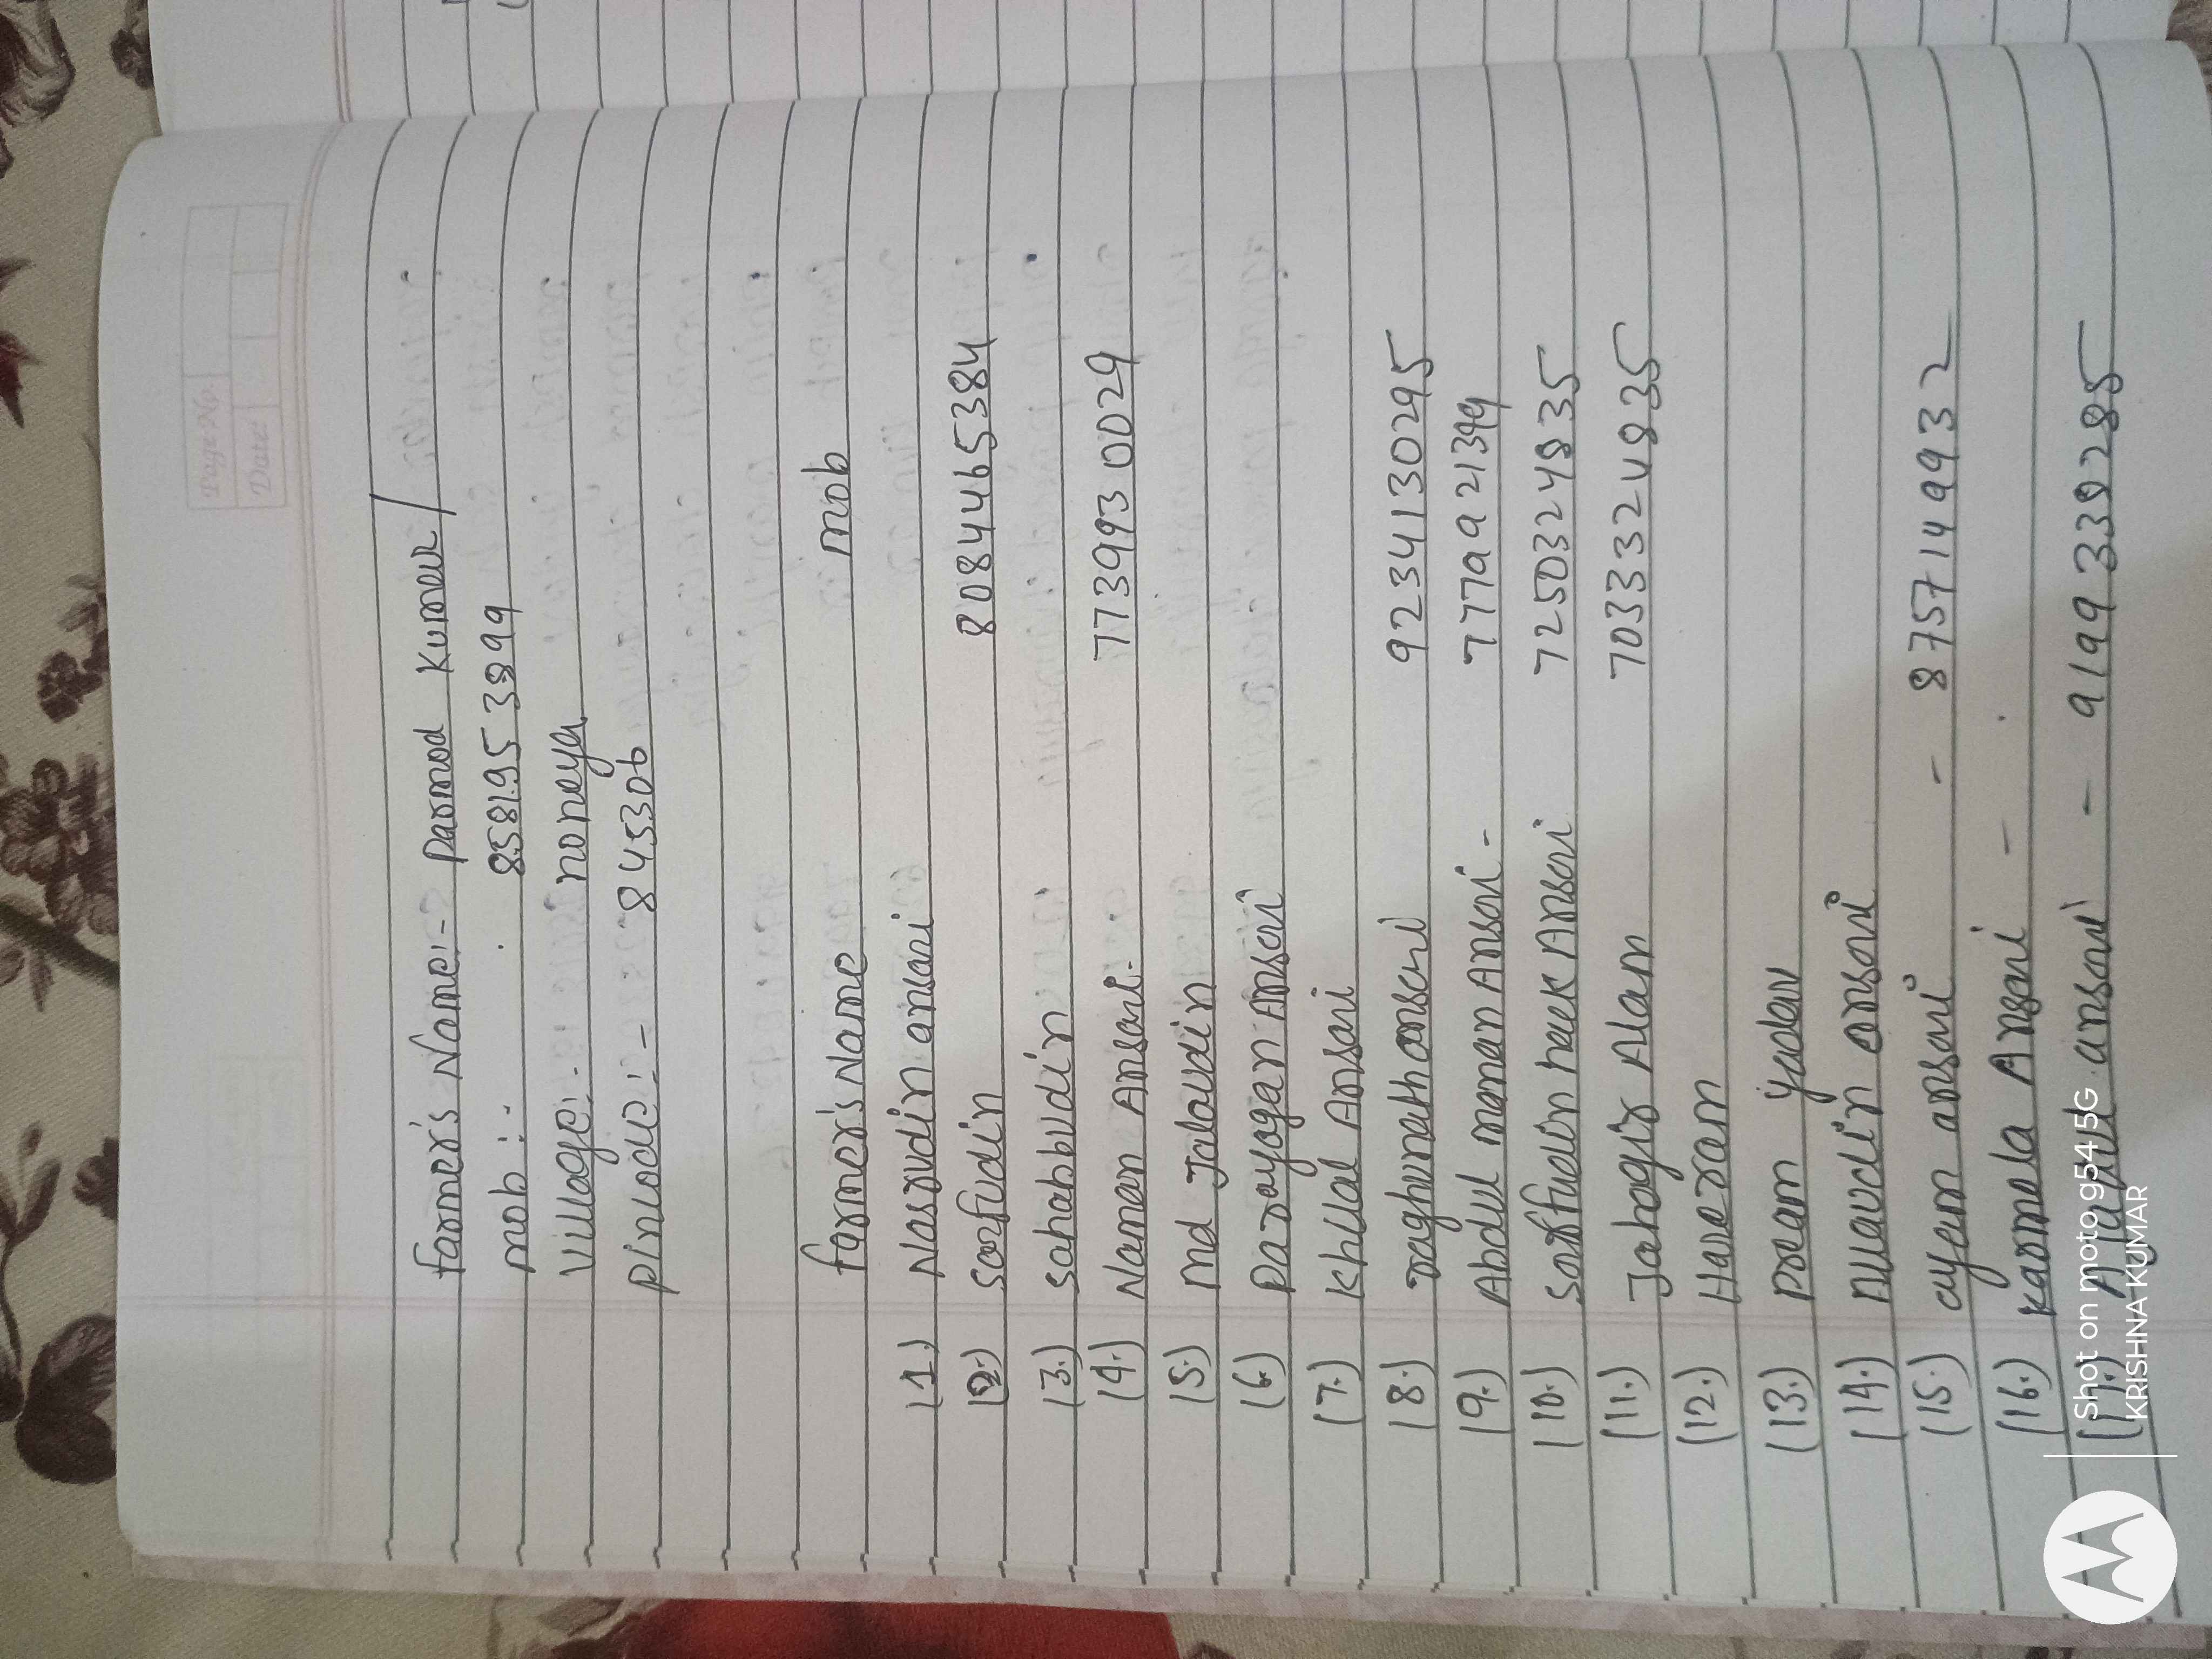 Page No.
Date:
Farmer's Name:- Parmod Kumar/
mob :- 8581953899
Village:- noneya
Pincode:- 845306
Farmer's Name mob
(1.) Nasrudin ansari
(2.) Sarfudin 8084465384
(3.) Sahabbudin
(4.) Naman Ansari. 7739930029
(5.) Md Jalaudin
(6.) Parayogan Ansari
(7.) Khilal Ansari
(8.) raghunath ansari 9234130295
(9.) Abdul manan Ansari - 7779921399
(10.) Saifudin haek Ansari 7250324835
(11.) Jahagir Alam 7033324835
(12.) Hareram
(13.) Pream yadav
(14.) Alaudin ansari
(15.) ayem ansari - 8757149932
(16.) Karmela Ansari -
ansari - 9199339285
Shot on moto g54 5G
KRISHNA KUMAR